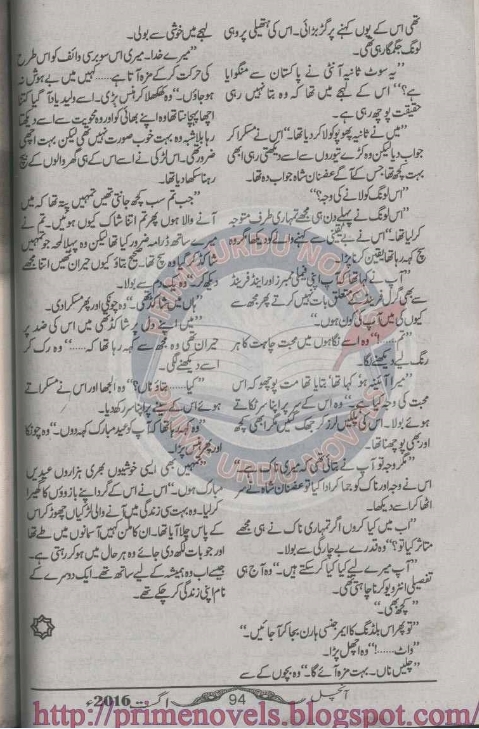 تھی اس کے یوں کہنے پر گڑبڑائی۔ اس کی ہتھیلی پر وہی
لونگ جگمگا رہی تھی۔
”یہ سوٹ ثانیہ آنٹی نے پاکستان سے منگوایا
ہے؟“ اس کے لہجے میں تھا کہ وہ بتا نہیں رہی
حقیقت پوچھ رہی ہے۔
”میں نے ثانیہ پھوپو کو لا کر دیا تھا۔“ اس نے مسکرا کر
جواب دیا لیکن وہ کڑے تیوروں سے اسے دیکھتی رہی ابھی
بہت کچھ تھا جس کے آگے عفنان شاہ جواب دہ تھا۔
”اس لونگ کو لانے کی وجہ؟“
”اس لونگ نے پہلے دن ہی مجھے تمہاری طرف متوجہ
کر لیا تھا۔“ اس نے بے یقینی سے کہنے والے کو دیکھا مگر وہ
سچ کہہ رہا تھا یقین کرنا پڑا۔
”آپ نے کہا تھا کہ آپ اپنی فیملی ممبرز اور اینڈ فرینڈ
سے بھی گرل فرینڈ کے متعلق بات نہیں کرتے پھر مجھ سے
کیوں کی میں آپ کی کون ہوں۔“
”تم......!“ وہ اسے نگاہوں میں محبت چاہت کا ہر
رنگ لیے دیکھنے لگا۔
”میرا آئینہ ہو، کہا تھا، بتایا تھا مت پوچھو کہ اس
محبت کی وجہ کیا ہے۔“ وہ اس کے سر پر اپنا سر ٹکاتے
ہوئے بولا۔ اس کی پلکیں لرز کر جھک گئیں مگر ابھی کچھ
اور بھی پوچھنا تھا۔
”مگر وجہ تو آپ نے بتائی تھی کہ میری ناک ہے۔“
اس نے وجہ اور ناک کو جما کر ادا کیا تو عفنان شاہ نے سر
اٹھا کر اسے دیکھا۔
”اب میں کیا کروں اگر تمہاری ناک نے ہی مجھے
متاثر کیا تو؟“ وہ قدرے بے چارگی سے بولا۔
”آپ میرے لیے کیا کیا کر سکتے ہیں۔“ وہ آج ہی
تفصیلی انٹرویو کرنا چاہتی تھی۔
”کچھ بھی۔“
”تو پھر اس بلڈنگ کا ایمرجنسی ہارن بجا کر آ جائیں۔“
”واٹ......!“ وہ اچھل پڑا۔
”چلیں ناں۔ بہت مزہ آئے گا۔“ وہ بچوں کے سے
لہجے میں خوشی سے بولی۔
”میرے خدا۔ میری اس سوبر سی وائف کو اس طرح
کی حرکت کر کے مزہ آتا ہے...... کہیں میں بے ہوش نہ
ہو جاؤں۔“ وہ کھلکھلا کر ہنس پڑی۔ اسے ولید یاد آ گیا کتنا
اچھا پہچانتا تھا وہ اپنے بھائی کو اور وہ محویت سے اسے دیکھتا
رہا بلاشبہ وہ بہت خوب صورت نہیں تھی لیکن بہت اچھی
ضرور تھی۔ اس لڑکی نے اسے اس کے ہی گھر والوں کے بیچ
رہنا سکھا دیا تھا۔
”جب تم سب کچھ جانتی تھیں تمہیں پتہ تھا کہ میں
آنے والا ہوں پھر تم اتنا شاک کیوں ہوئیں۔ تم نے
میرے ساتھ ڈرامہ ضرور کیا تھا لیکن وہ پہلا لمحہ جو تمہیں
شاکڈ کر گیا وہ سچ تھا۔ صحیح بتاؤ کیوں حیران تھیں اتنا مجھے
دیکھ کر۔“ وہ یک دم سے بولا۔
”ہاں میں شاکڈ تھی۔“ وہ چونکی اور پھر مسکرا دی۔
”میں اپنے دل پر شاکڈ تھی میں اس کی ضد پر
حیران تھی وہ مجھ سے کہہ رہا تھا کہ......“ وہ رک کر
اسے دیکھنے لگی۔
”کیا...... بتاؤ ناں؟“ وہ الجھا اور اس نے مسکراتے
ہوئے اس کے سینے پر اپنا سر رکھ دیا۔
”وہ کہہ رہا تھا کہ آپ کو عید مبارک کہہ دوں۔“ وہ چونکا
اور پھر ہنس پڑا۔
”تمہیں بھی ایسی خوشیوں بھری ہزاروں عیدیں
مبارک ہوں۔“ اس نے اس کے گرد اپنے بازوؤں کا گھیرا
کر لیا۔ وہ بہت سی زندگی میں آنے والی لڑکیاں چھوڑ کر اس
کے پاس چلا آیا تھا۔ ان کا ملن کہیں آسمانوں میں طے تھا
اور جو بات لکھ دی جائے وہ ہر حال میں ہو کر رہتی ہے۔
جیسے اب وہ ہمیشہ کے لیے ساتھ تھے۔ ایک دوسرے کے
نام اپنی زندگی کر چکے تھے۔
آنچل 94 اگست 2016ء
PRIME URDU NOVELS
http://primenovels.blogspot.com/